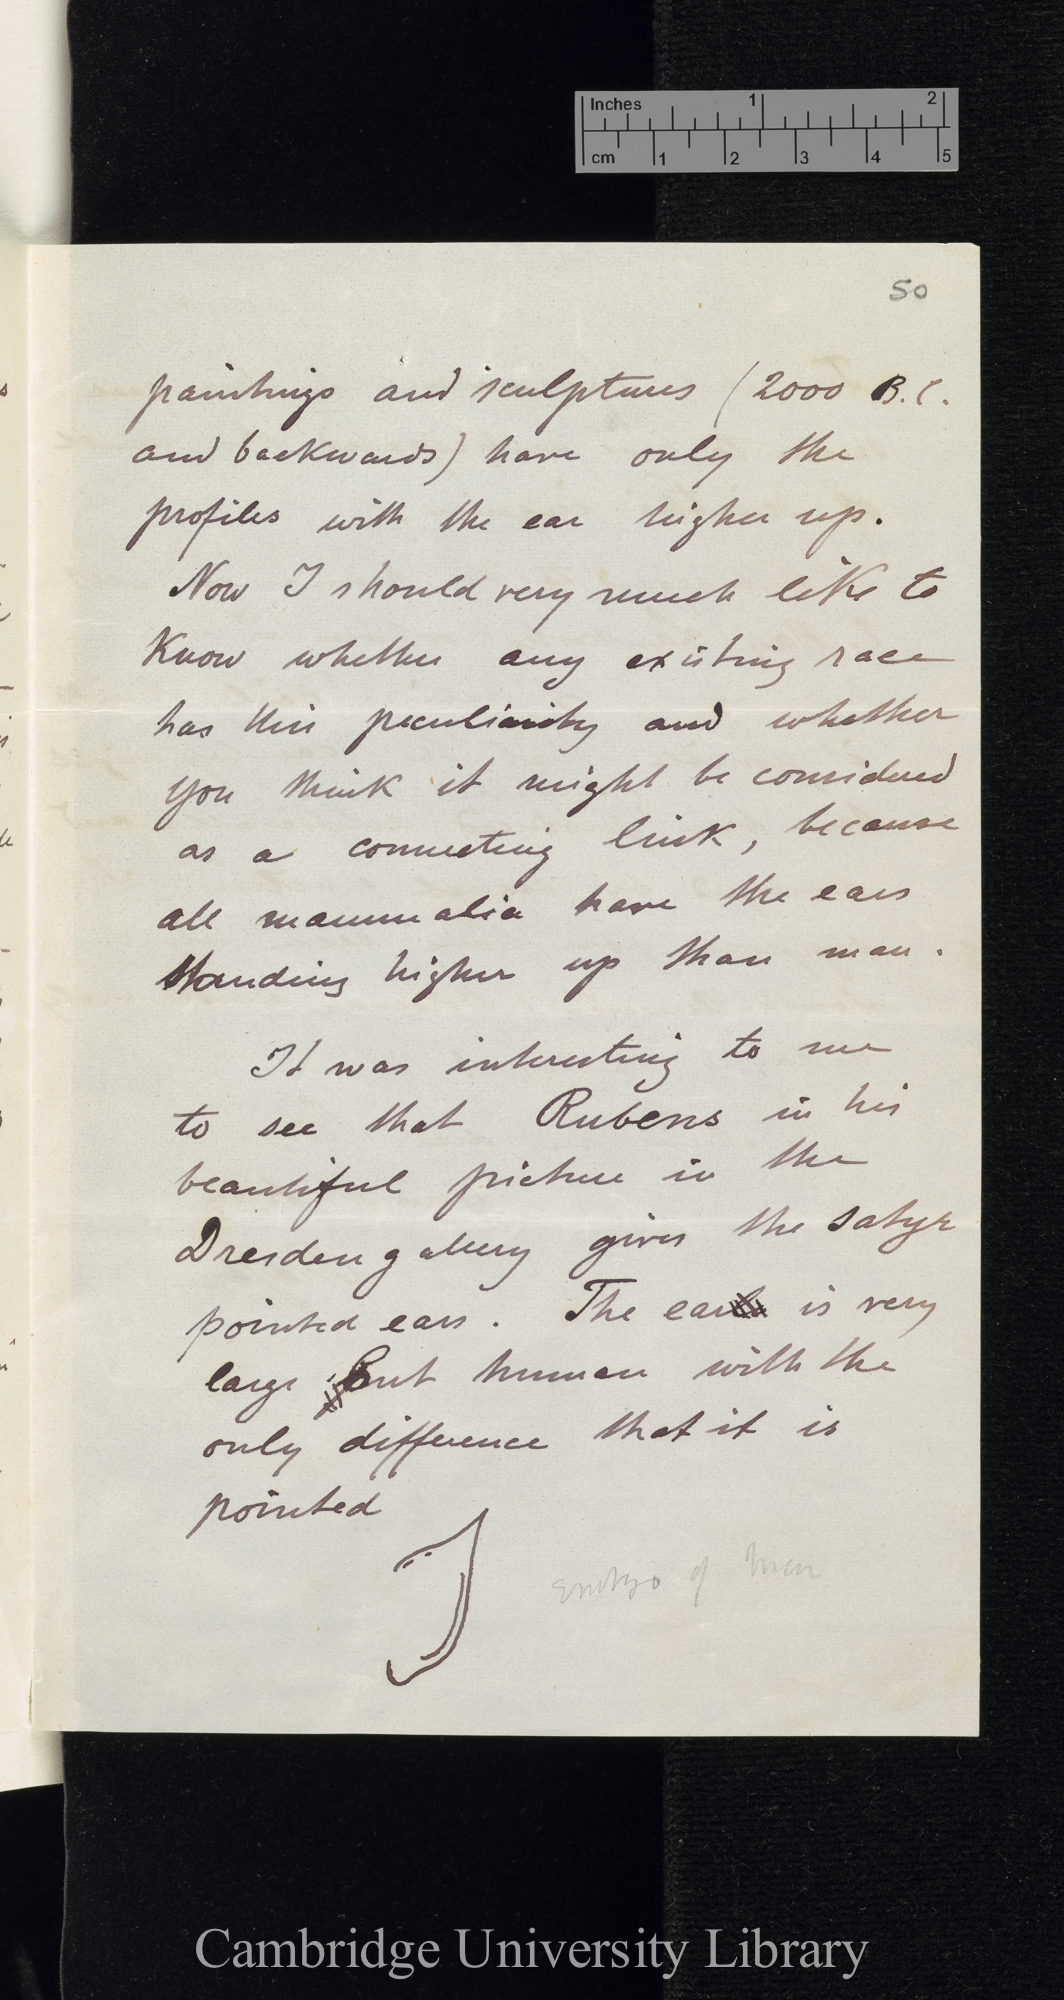 Inches 1 2
cm 1 2 3 4 5
50
paintings and sculptures (2000 B.C.
and backwards) have only the
profiles with the ear higher up.
Now I should very much like to
Know whether any existing race
has this peculiarity and whether
you think it might be considered
as a connecting link, because
all mammalia have the ears
standing higher up than man.
It was interesting to me
to see that Rubens in his
beautiful picture in the
Dresden gallery gives the satyr
pointed ears. The ear is very
large but human with the
only difference that it is
pointed
Embryo of Man
Cambridge University Library